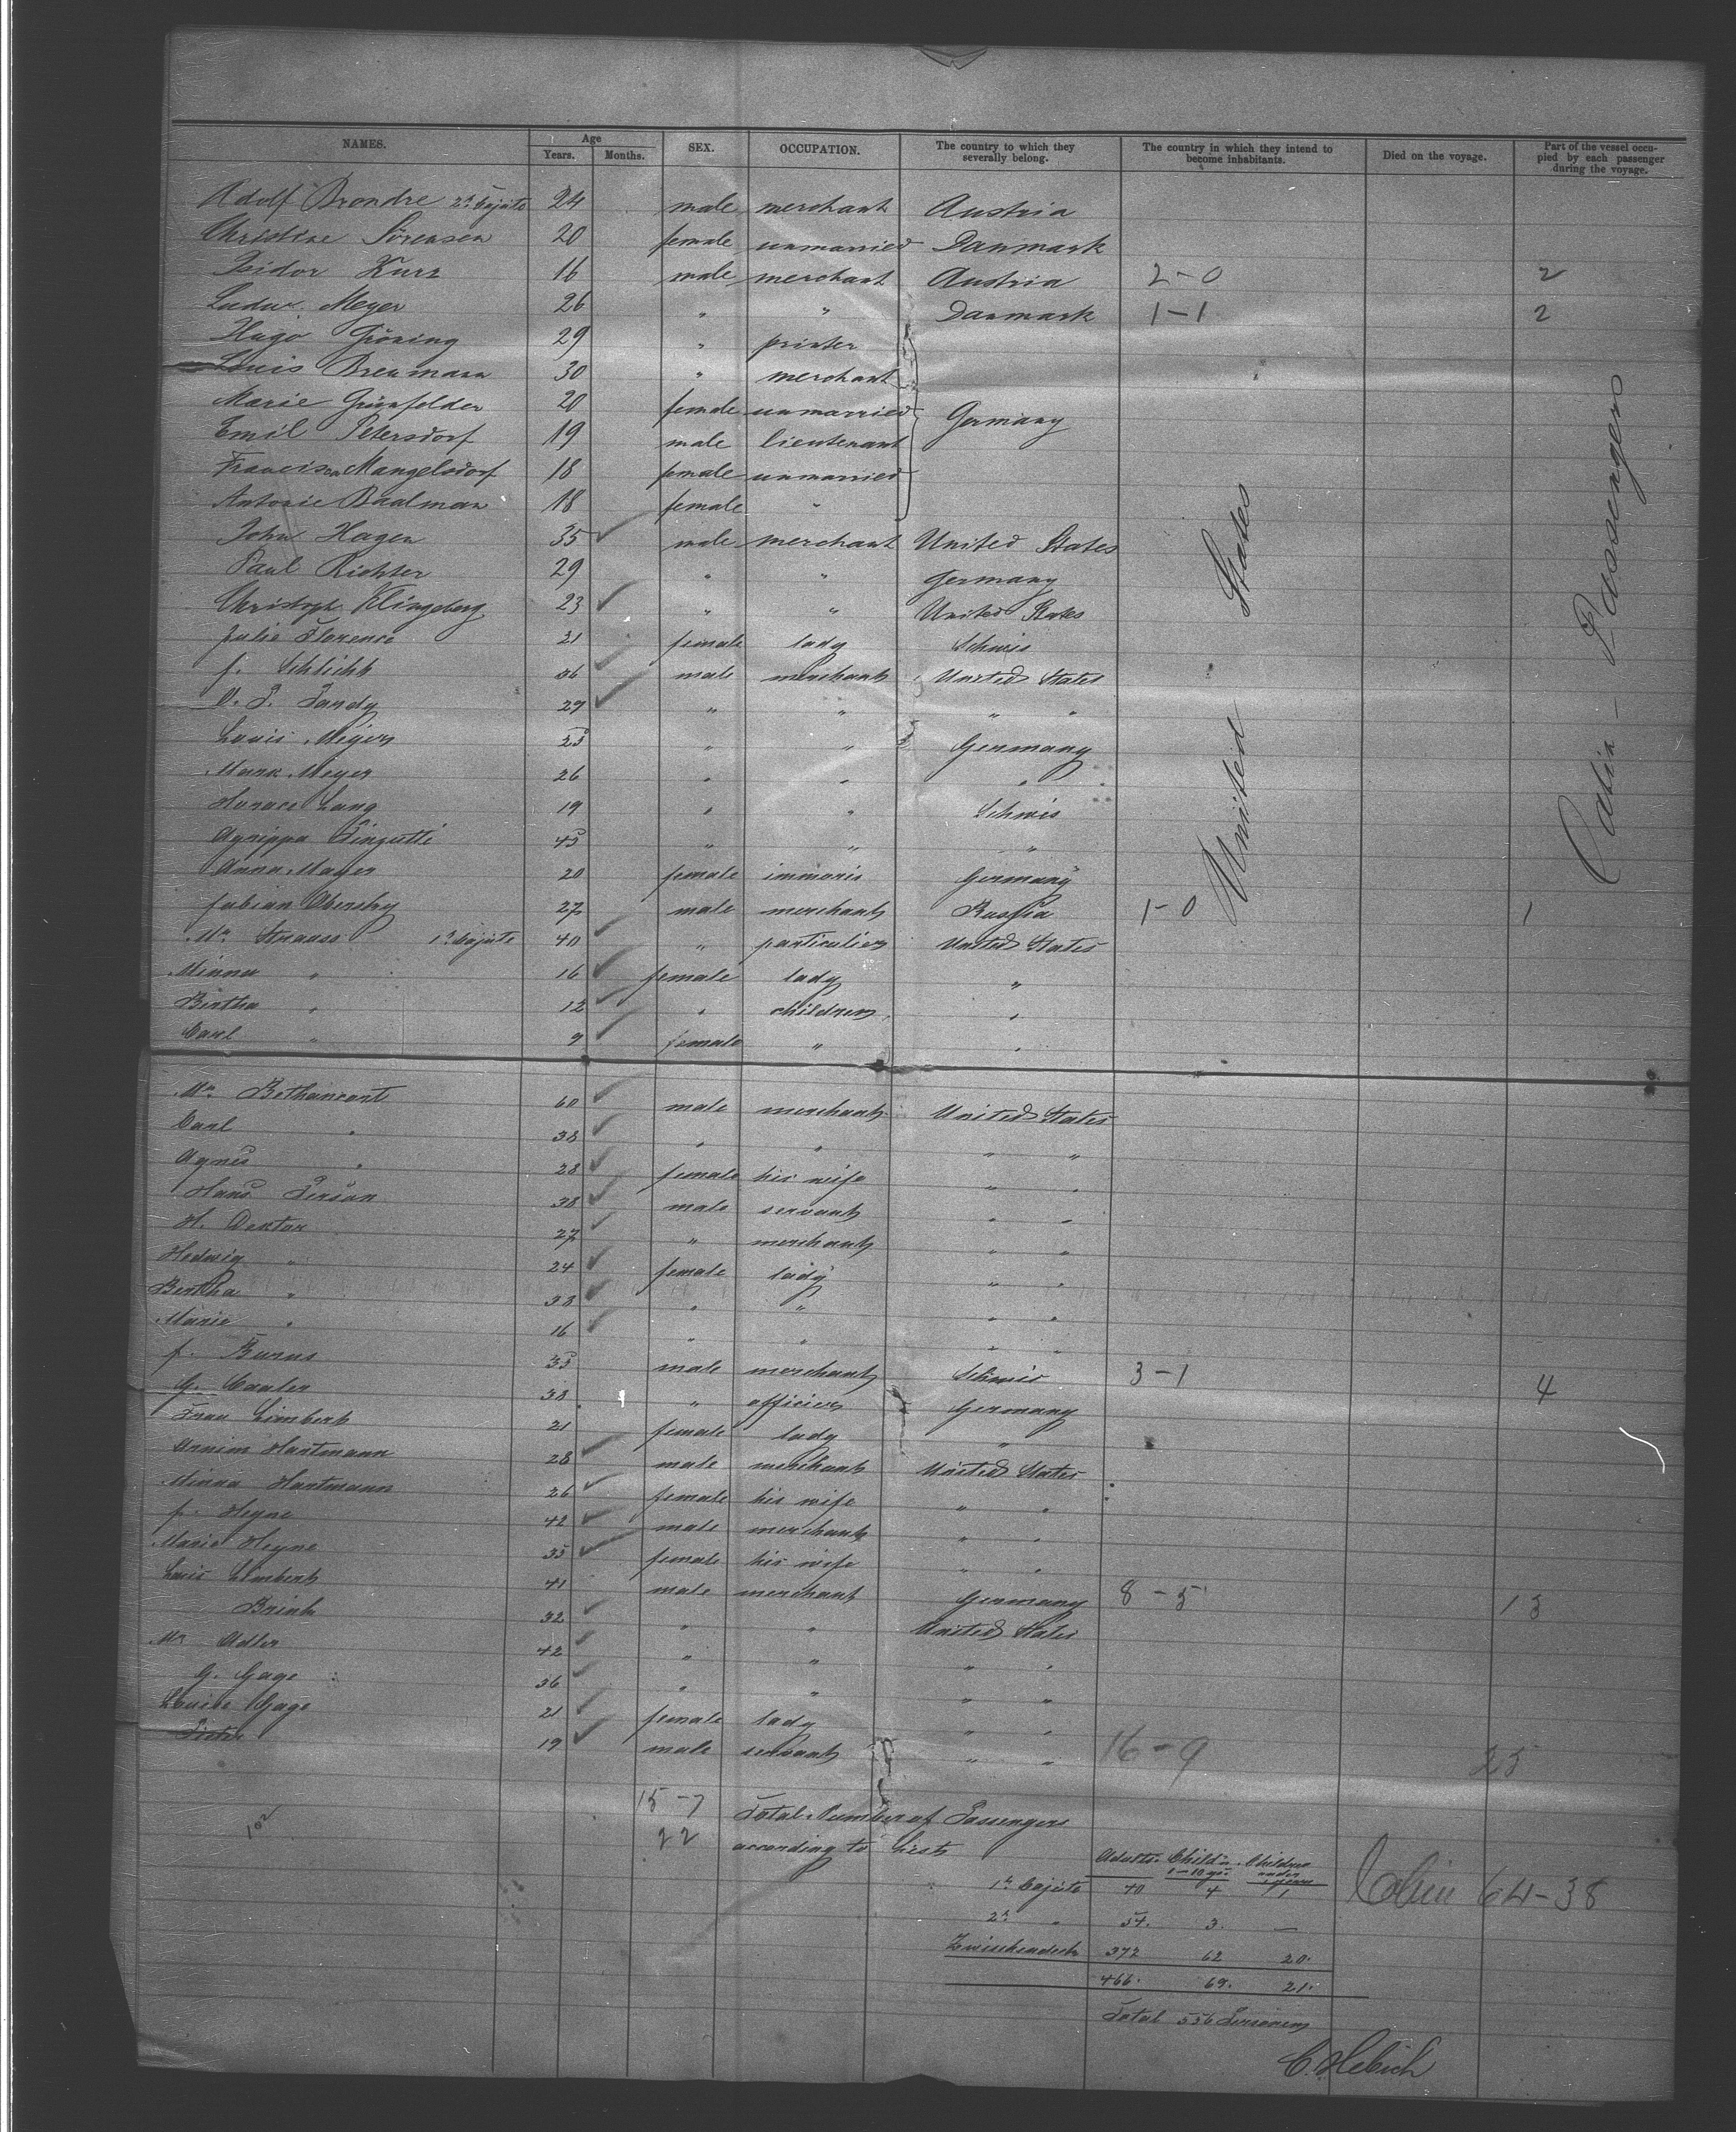 NAMES. Age Years. Months. SEX. OCCUPATION. The country to which they severally belong. The country in which they intend to become inhabitants. Died on the voyage. Part of the vessel occupied by each passenger during the voyage.
Adolf Brondre 2te Cajüte 24 male merchant Austria
Christine Sörensen 20 female unmarried Danmark
Isidor Kurz 16 male merchant Austria 2-0 2
Ludw. Meyer 26 " " Danmark 1-1 2
Hugo Gröning 29 " printer
Louis Breumann 30 " merchant
Marie Grünfelder 20 female unmarried Germany
Emil Petersdorf 19 male lieutenant
Francisca Mangelsdorf 18 female unmarried
Antonie Baalman 18 female "
John Hagen 35 male merchant United States
Paul Richter 29 " " Germany
Christoph Klingeberg 23 " " United States
Julie Florence 21 female lady Schweis
J. Schlicht 36 male merchant United States
29 " " " "
Louis Meyer 25 " " Germany
Mark Meyer 26 " " "
Horace Lang 19 " " Schweis
Agrippa 45 " " "
Anna Mayer 20 female Germany
Fabian 27 male merchant Russia 1-0 1
Mr. Strauss 1te Cajüte 40 " particulier United States
Minna " 16 female lady "
Bertha " 12 " children "
Carl " 9 female " "
United States
Cabin-Passengers
Mr. Bethancourt 60 male merchant United States
Carl " 38 " " " "
Agnes " 28 female his wife " "
Hans 38 male servant " "
H. Dexter 27 " merchant " "
Hedwig " 24 female lady " "
Bertha " 38 " " " "
Marie " 16 " " " "
J. Burns 35 male merchant Schweis 3-1 4
G. 38 " officier Germany
Frau Limbert 21 female lady "
Armin Hartmann 28 male merchant United States
Minna Hartmann 26 female his wife " "
J. Heyne 42 male merchant " "
Marie Heyne 35 female his wife " "
Louis Limbert 41 male merchant Germany 8-5 13
Brink 32 " " United States
Mr Adler 42 " " " "
G. Gage 36 " " " "
Louise Gage 21 female lady " "
19 male servant " " 16-9 25
15-7 Total Number of Passengers
22 according to Lists
Adults. Children 1-10 yrs. Children under 1 year
1te Cajüte 40 4 1
2te " 54. 3. —
Zwischendeck 372 62 20.
466. 69. 21.
Total 556 Personen
Cabin 64-38
C. Hebich